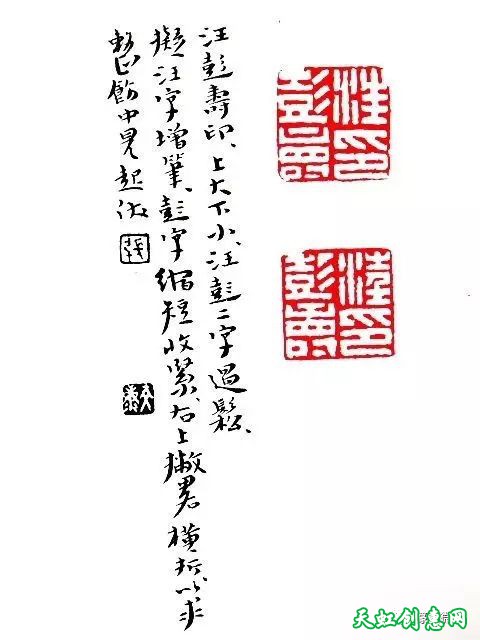 汪彭壽印、上大下小、汪彭二字過鬆、
擬汪字增筆、彭字縮短收緊、右上撇畧橫折以求
整飭中見起伏
汪印
彭壽
汪印
彭壽
天虹创意网